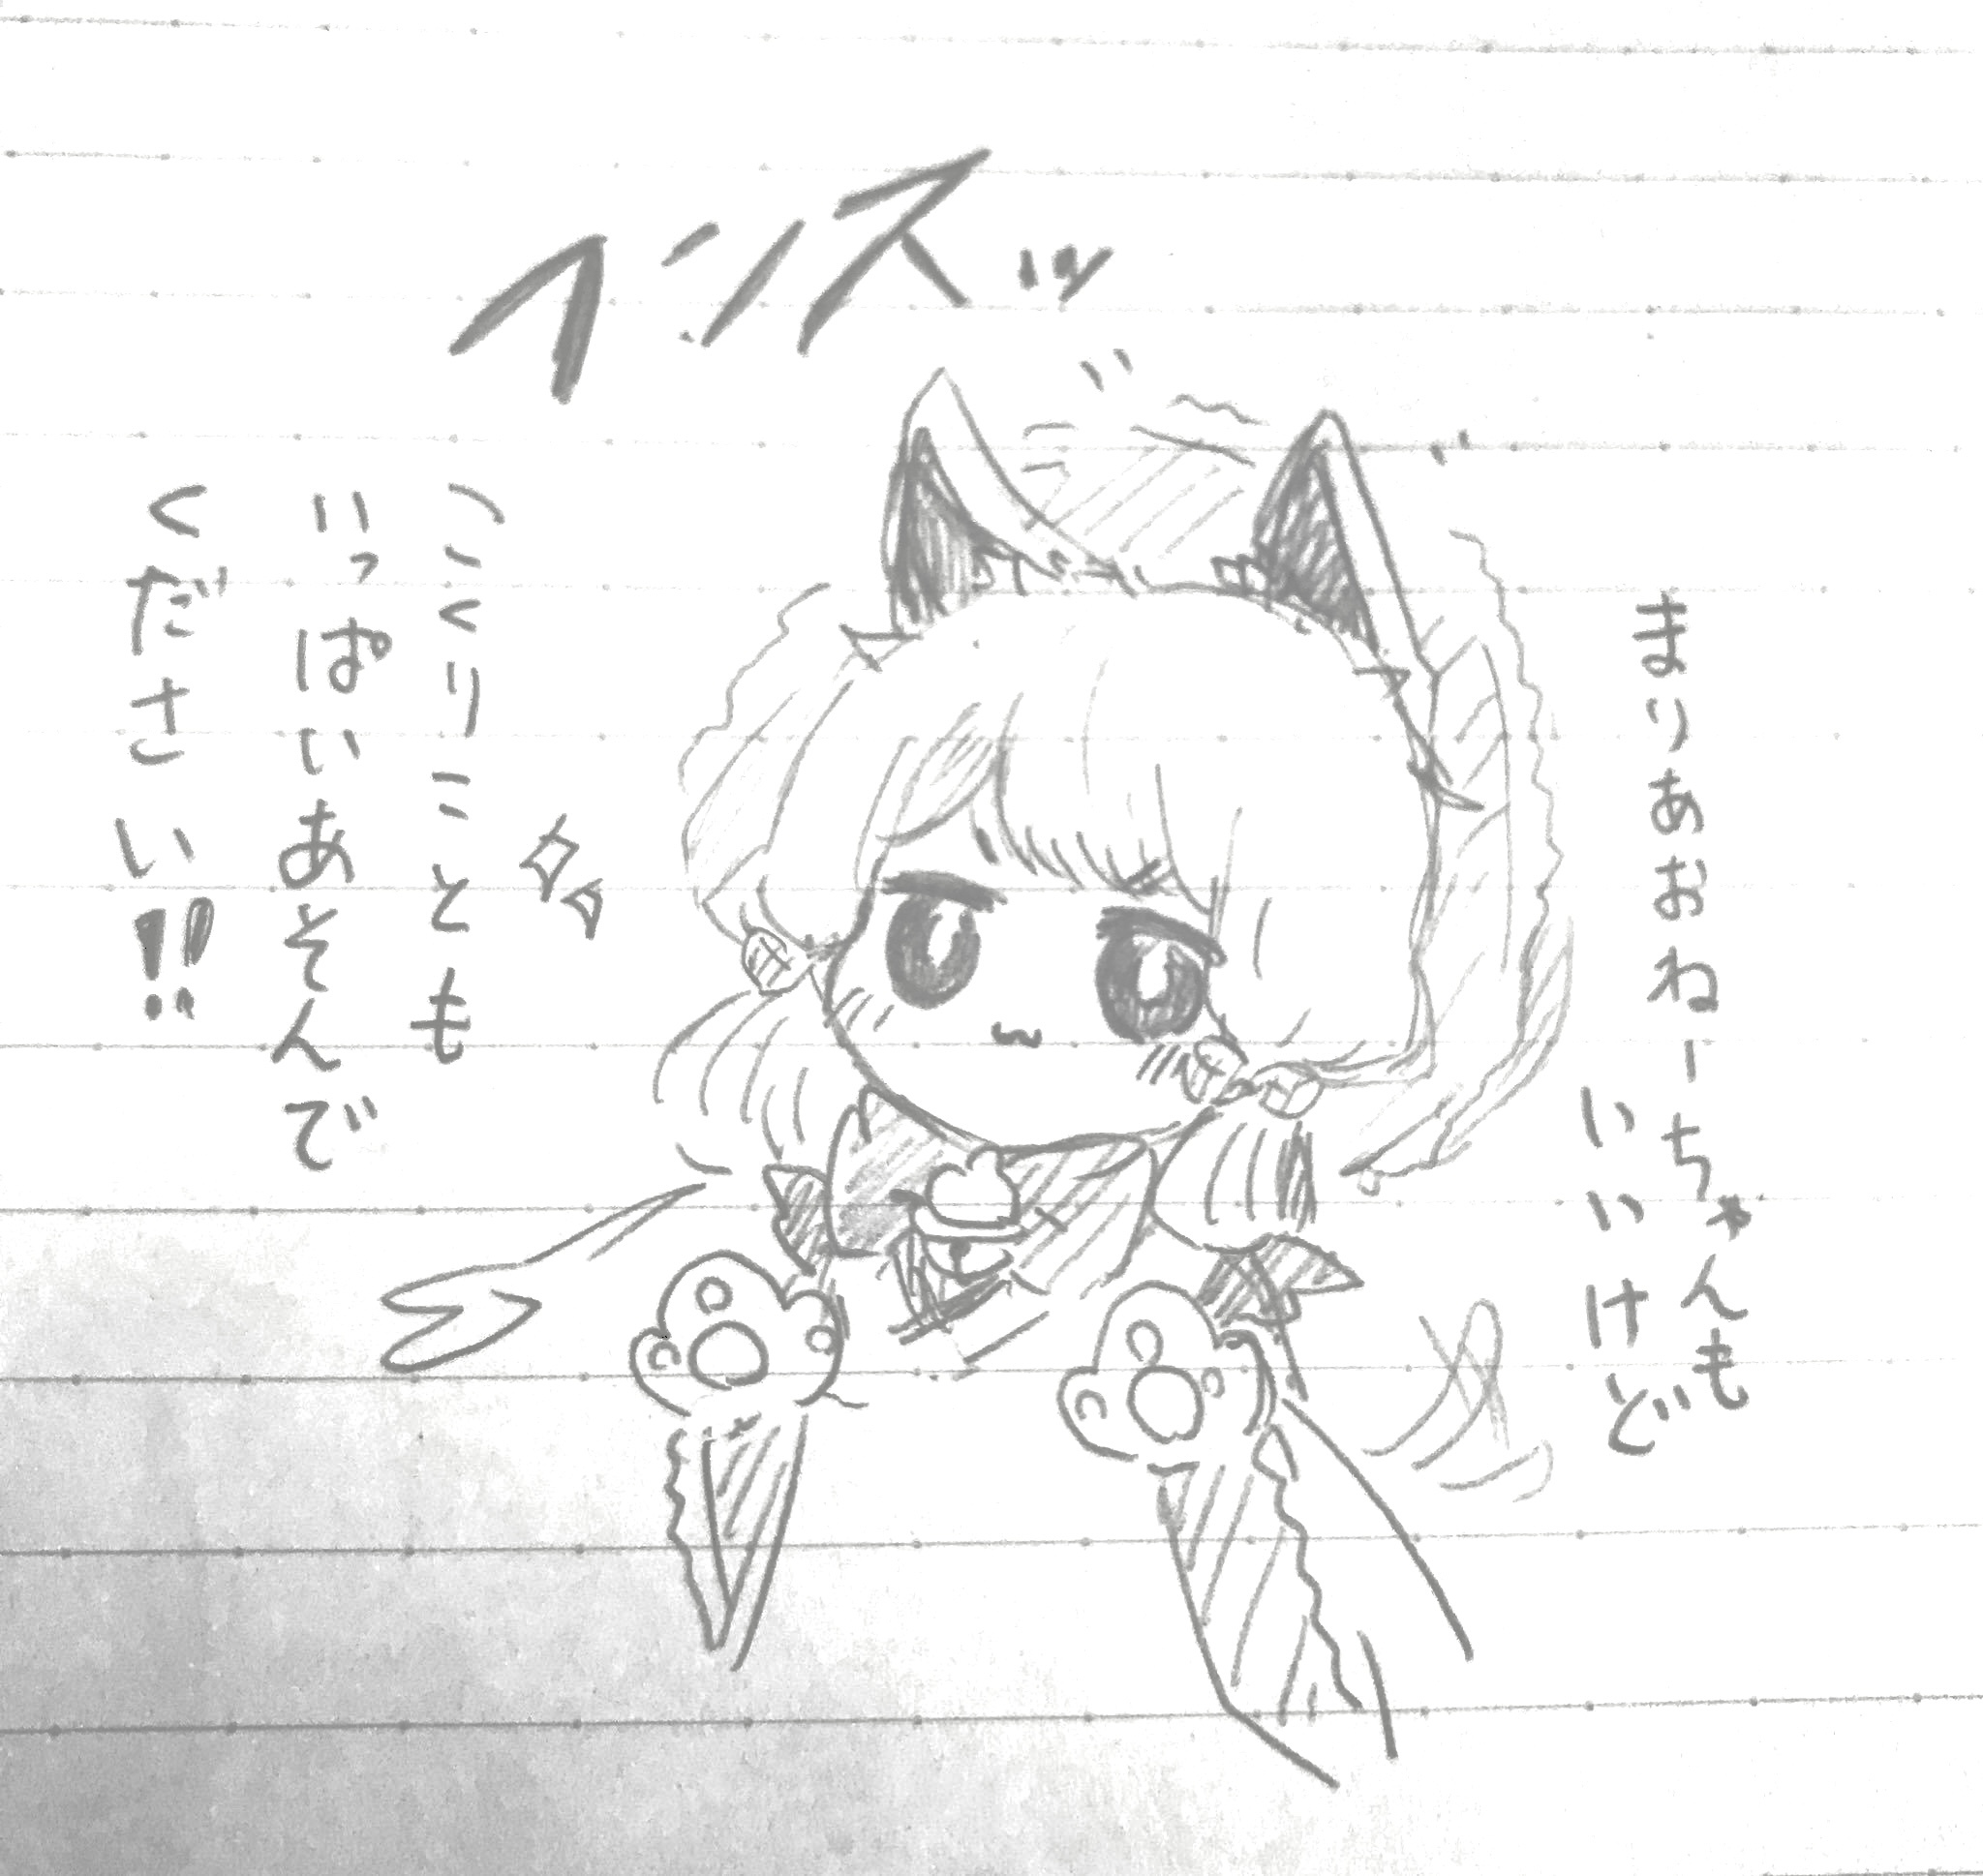 フンスッ
まりあおねーちゃんも
いいけど
こくりことも
いっぱいあそんで
ください!!